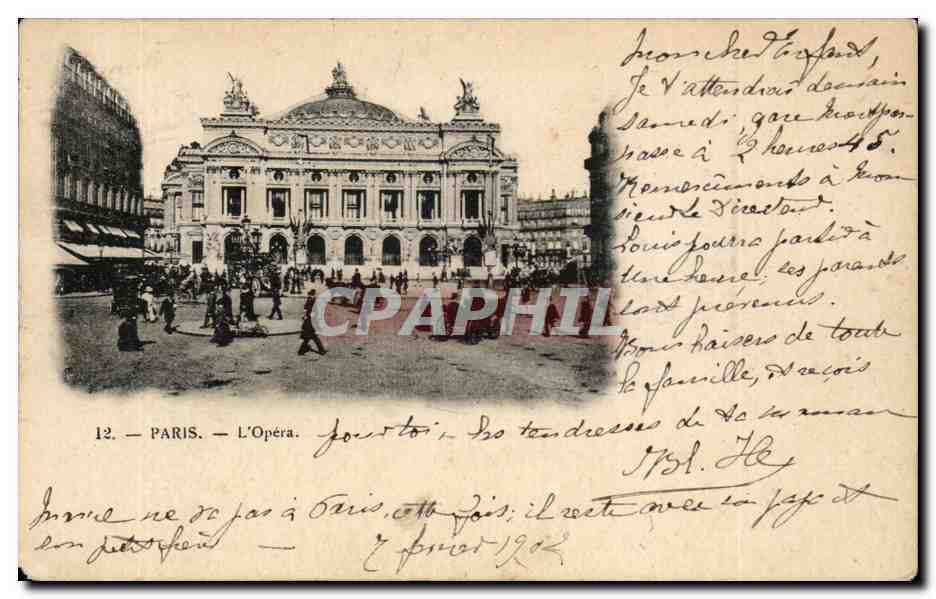 Mon cher Enfant,
Je t'attendrai demain
samedi, gare Montpar-
nasse à 2 heures 45.
Remerciments à Mon
sieur le Directeur.
Louis pourra partir à
une heure, ses parents
sont prévenus.
Bons baisers de toute
la famille, et reçois
12. — PARIS. — L'Opéra.
pour toi les tendresses de ta maman
Bl.
CPAPHIL
ne va pas à Paris, cette fois; il reste avec son papa et
son petit frère — 7 février 1902